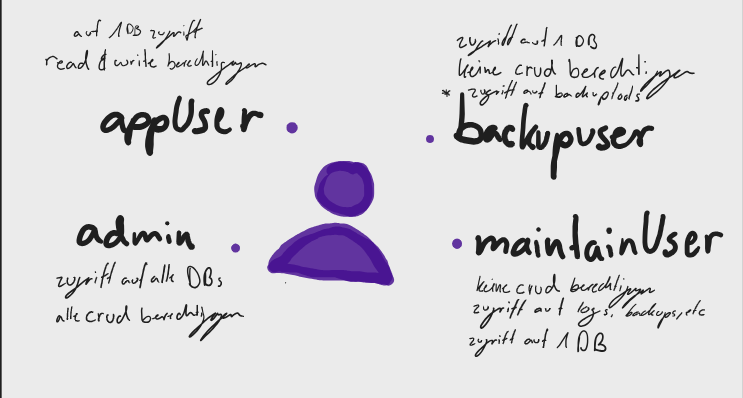 auf 1 DB zugriff
read & write berechtigungen
appUser
zugriff auf 1 DB
keine crud berechtigungen
* zugriff auf backuptools
backupuser
admin
zugriff auf alle DBs
alle crud berechtigungen
maintainUser
keine crud berechtigungen
zugriff auf logs, backups, etc
zugriff auf 1 DB